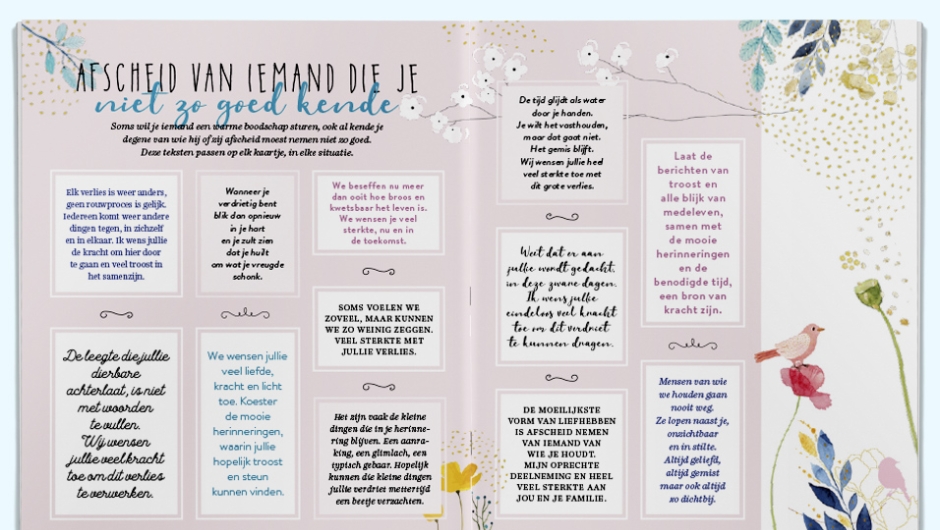 AFSCHEID VAN IEMAND DIE JE
niet zo goed kende
Soms wil je iemand een warme boodschap sturen, ook al kende je
degene van wie hij of zij afscheid moest nemen niet zo goed.
Deze teksten passen op elk kaartje, in elke situatie.
Elk verlies is weer anders,
geen rouwproces is gelijk.
Iedereen komt weer andere
dingen tegen, in zichzelf
en in elkaar. Ik wens jullie
de kracht om hier door
te gaan en veel troost in
het samenzijn.
De leegte die jullie
dierbare
achterlaat, is niet
met woorden
te vullen.
Wij wensen
jullie veel kracht
toe om dit verlies
te verwerken.
Wanneer je
verdrietig bent
blik dan opnieuw
in je hart
en je zult zien
dat je huilt
om wat je vreugde
schonk.
We wensen jullie
veel liefde,
kracht en licht
toe. Koester
de mooie
herinneringen,
waarin jullie
hopelijk troost
en steun
kunnen vinden.
We beseffen nu meer
dan ooit hoe broos en
kwetsbaar het leven is.
We wensen je veel
sterkte, nu en in
de toekomst.
SOMS VOELEN WE
ZOVEEL, MAAR KUNNEN
WE ZO WEINIG ZEGGEN.
VEEL STERKTE MET
JULLIE VERLIES.
Het zijn vaak de kleine
dingen die in je herinne-
ring blijven. Een aanra-
king, een glimlach, een
typisch gebaar. Hopelijk
kunnen die kleine dingen
jullie verdriet mettertijd
een beetje verzachten.
De tijd glijdt als water
door je handen.
Je wilt het vasthouden,
maar dat gaat niet.
Het gemis blijft.
Wij wensen jullie heel
veel sterkte toe met
dit grote verlies.
Weet dat er aan
jullie wordt gedacht,
in deze zware dagen.
Ik wens jullie
eindeloos veel kracht
toe om dit verdriet
te kunnen dragen.
DE MOEILIJKSTE
VORM VAN LIEFHEBBEN
IS AFSCHEID NEMEN
VAN IEMAND VAN
WIE JE HOUDT.
MIJN OPRECHTE
DEELNEMING EN HEEL
VEEL STERKTE AAN
JOU EN JE FAMILIE.
Laat de
berichten van
troost en
alle blijk van
medeleven,
samen met
de mooie
herinneringen
en de
benodigde tijd,
een bron van
kracht zijn.
Mensen van wie
we houden gaan
nooit weg.
Ze lopen naast je,
onzichtbaar
en in stilte.
Altijd geliefd,
altijd gemist
maar ook altijd
zo dichtbij.